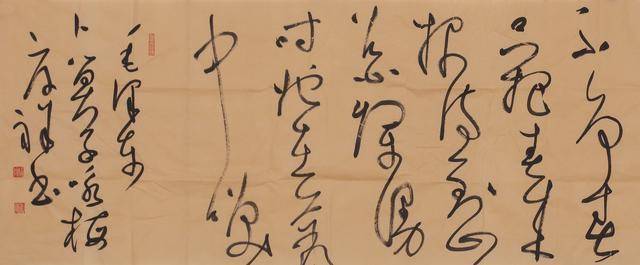 不争春
只把春来
报待到山
花烂漫
时她在丛
中笑
毛泽东
卜算子咏梅
祥书